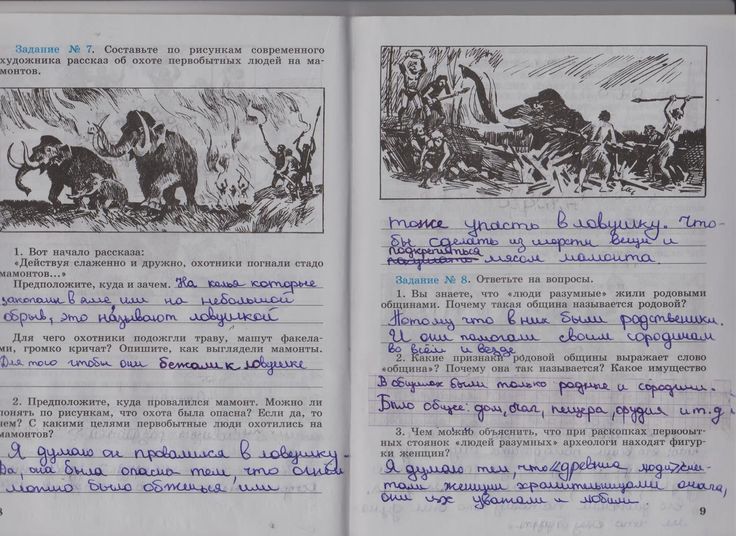 Задание № 7. Составьте по рисункам современного
художника рассказ об охоте первобытных людей на ма-
монтов.
1. Вот начало рассказа:
«Действуя слаженно и дружно, охотники погнали стадо
мамонтов...»
Предположите, куда и зачем. На колья которые
закопали в яме, или на небольшой
обрыв, это называют ловушкой
Для чего охотники подожгли траву, машут факела-
ми, громко кричат? Опишите, как выглядели мамонты.
Для того чтобы они бежали к ловушке
2. Предположите, куда провалился мамонт. Можно ли
понять по рисункам, что охота была опасна? Если да, то
чем? С какими целями первобытные люди охотились на
мамонтов?
Я думаю он провалился в ловушку.
Да, она была опасна тем, что огнём
можно было обжечься или
8
тоже упасть в ловушку. Что-
бы сделать из шерсти вещи и
подкрепиться
мясом мамонта
Задание № 8. Ответьте на вопросы.
1. Вы знаете, что «люди разумные» жили родовыми
общинами. Почему такая община называется родовой?
Потому что в них были родственики.
И они помогали своим сородичам
во всём и везде
2. Какие признаки родовой общины выражает слово
«община»? Почему она так называется? Какое имущество
В общинах были только родные и сородичи.
Было общее: дом, очаг, пещера, орудия и т.д.
3. Чем можно объяснить, что при раскопках первобыт-
ных стоянок «людей разумных» археологи находят фигур-
ки женщин?
Я думаю тем, что древние люди счи-
тали женщин хранительницами очага,
они их уважали и любили
9